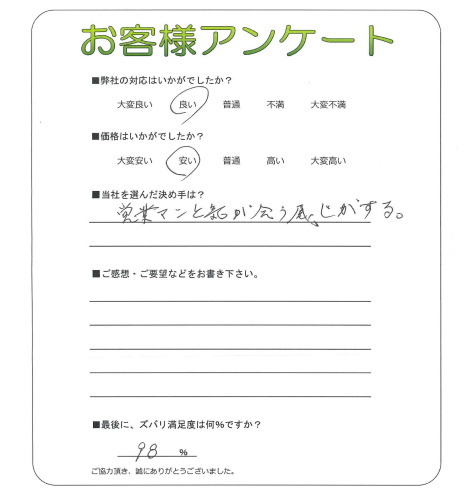 お客様アンケート
■弊社の対応はいかがでしたか？
大変良い 良い 普通 不満 大変不満
■価格はいかがでしたか？
大変安い 安い 普通 高い 大変高い
■当社を選んだ決め手は？
営業マンと話が合う感じがする。
■ご感想・ご要望などをお書き下さい。
■最後に、ズバリ満足度は何%ですか？
98 %
ご協力頂き、誠にありがとうございました。